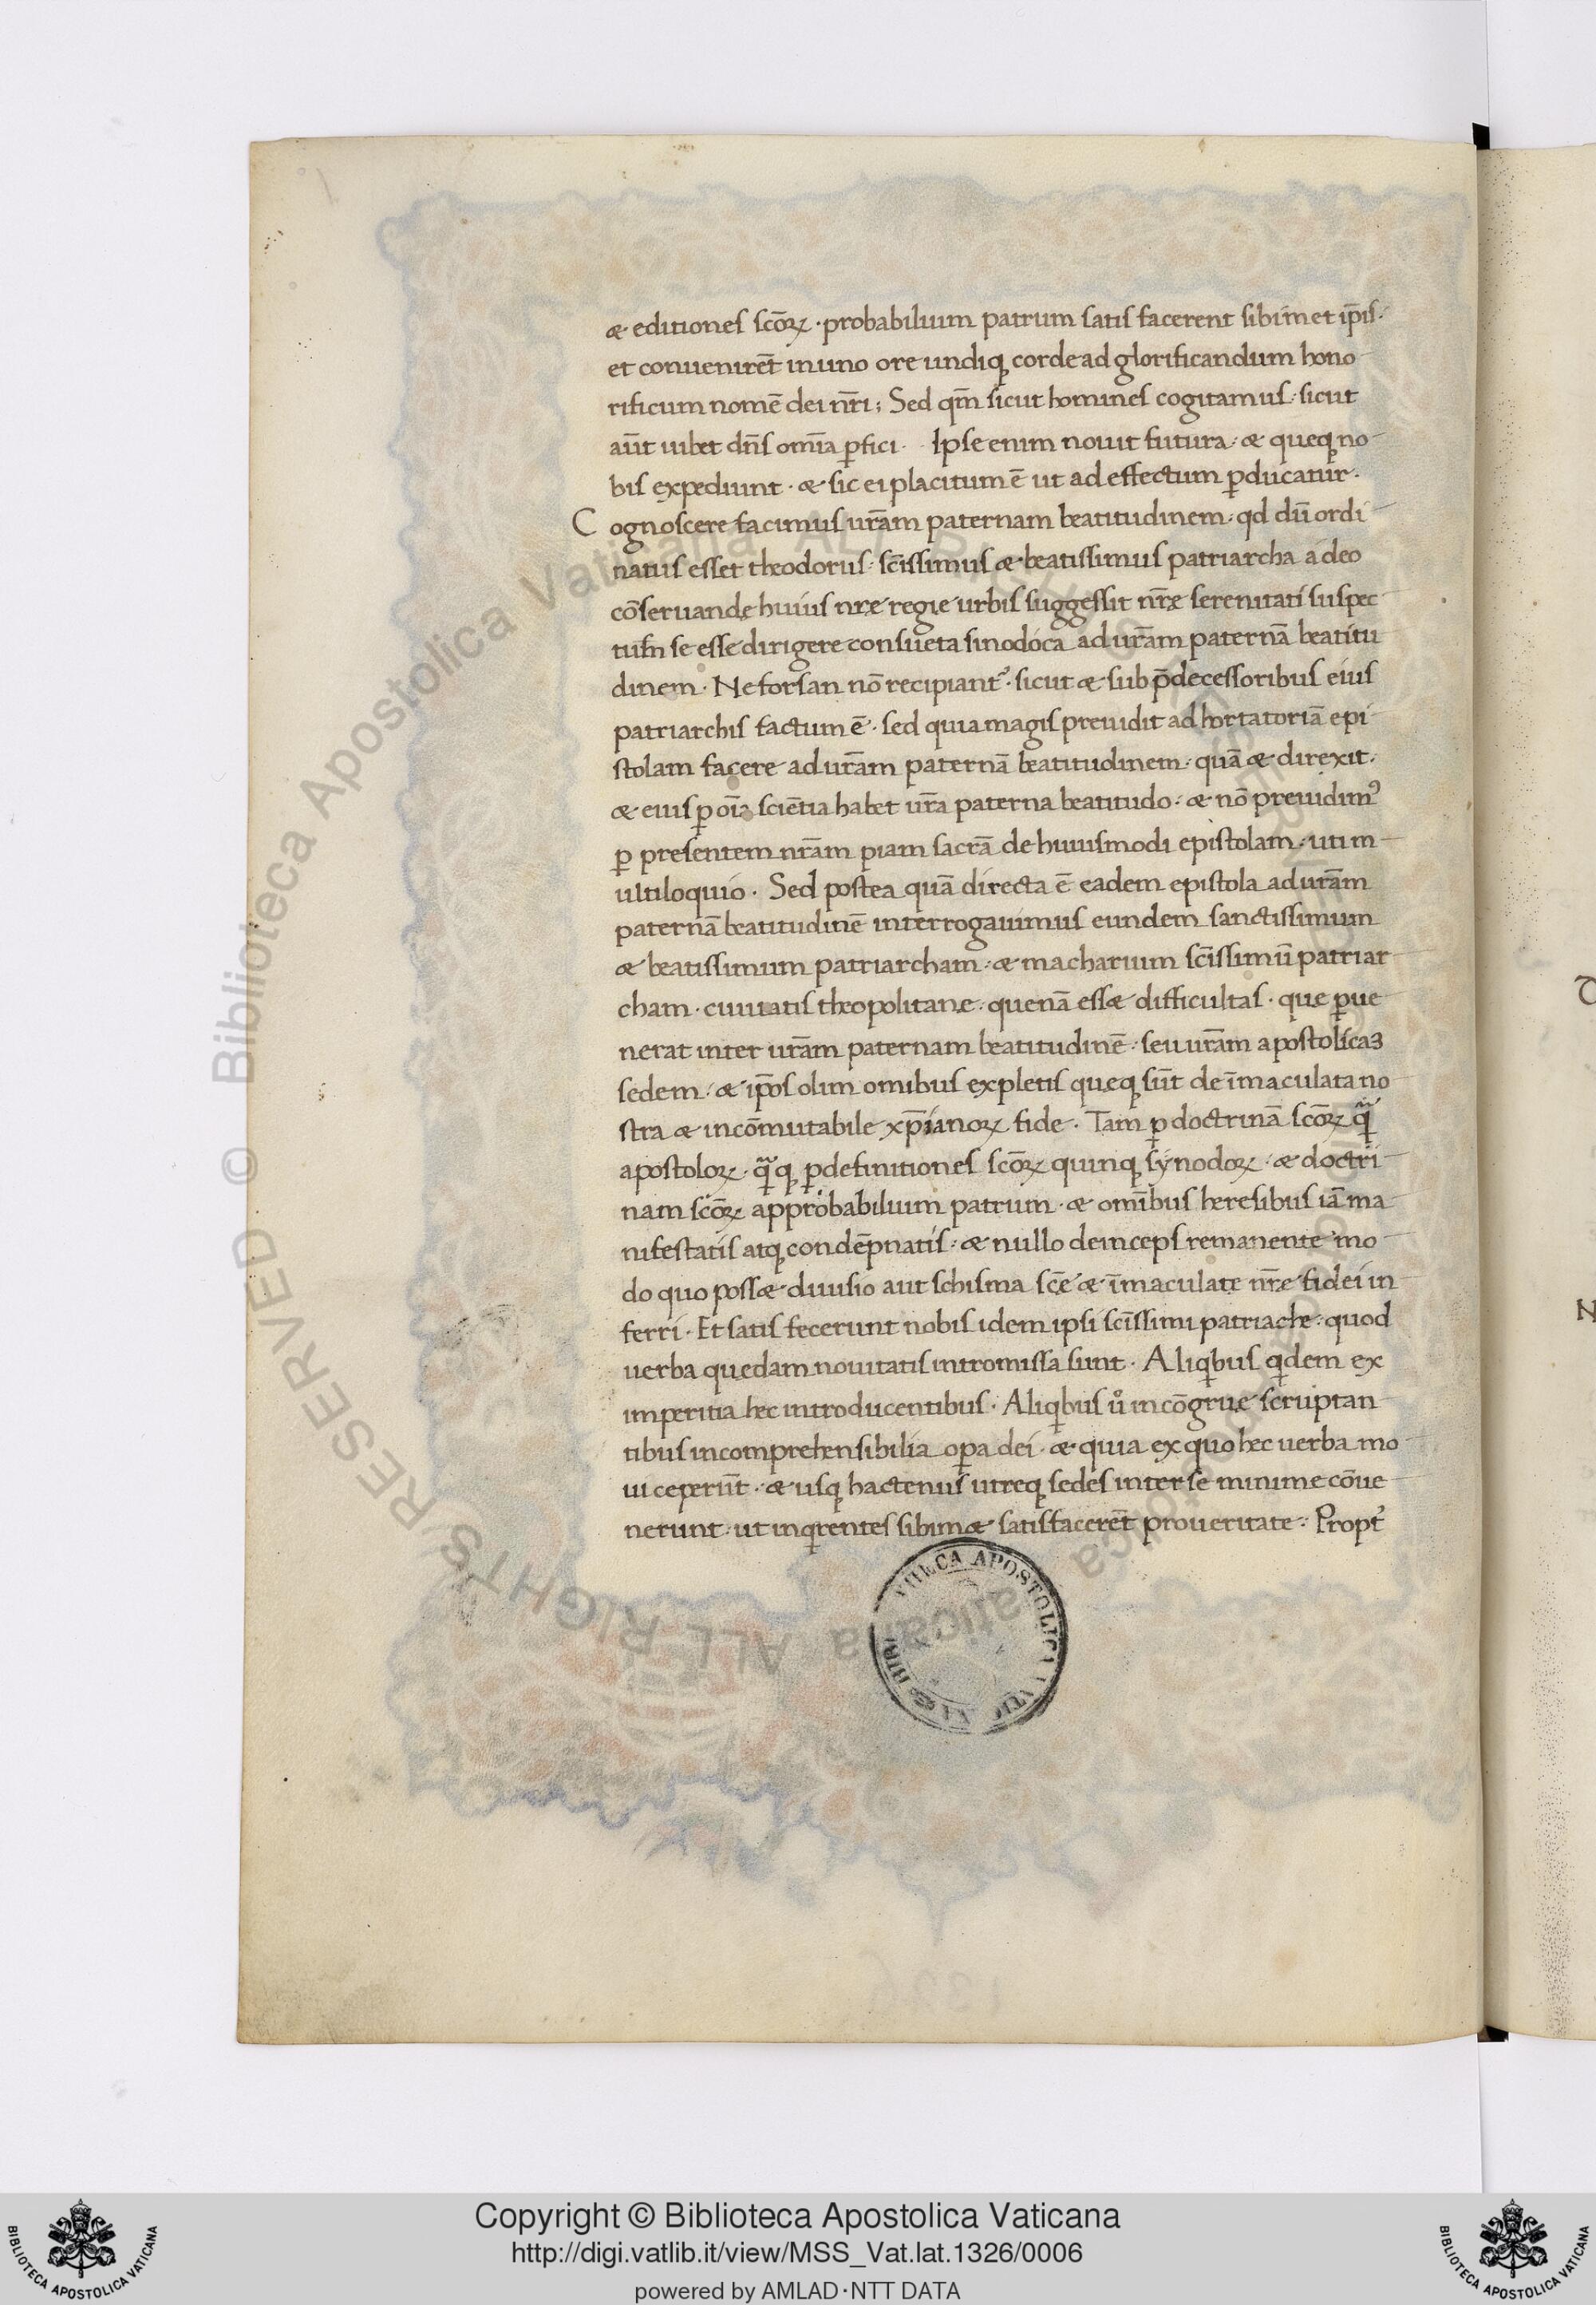 æ editiones scōꝝ · probabilium patrum satis facerent sibimet ip̄is ·
et conuenirēt in uno ore undiqꝫ corde ad glorificandum hono
rificum nomē dei nr̄i ; Sed qm̄ sicut homines cogitamus · sicut
aūt iubet dn̄s omīa ꝑfici · Ipse enim nouit futura · æ queqꝫ no
bis expediunt · æ sic ei placitum ē ut ad effectum ꝑducatur ·
Cognoscere facimus ur̄am paternam beatitudinem · qd dū ordi
natus esset theodorus · sc̄issimus æ beatissimus patriarcha a deo
cōseruande huius nrę regię urbis suggessit nr̄ę serenitati suspec
tum̄ se esse dirigere consueta sinodoca ad ur̄am paternā beatitu
dinem · Ne forsan nō recipiant᷑ · sicut æ sub p̄decessoribus eius
patriarchis factum ē · sed quia magis preuidit ad hortatoriā epi
stolam facere ad ur̄am paternā beatitudinem · quā æ direxit ·
æ eius ꝑ oīꝫ sciētia habet ur̄a paterna beatitudo · æ nō preuidimꝰ
ꝑ presentem nr̄am piam sacrā de huiusmodi epistolam · uti m
ultiloquio · Sed postea quā directa ē eadem epistola ad ur̄am
paternā beatitudinē interrogauimus eundem sanctissimum
æ beatissimum patriarcham · æ macharium sc̄issimū patriar
cham · ciuitatis theopolitane · quenā essæ difficultas · que ꝑue
nerat inter ur̄am paternam beatitudinē · seu ur̄am apostolicaꝫ
sedem · æ ip̄os olim omibus expletis queqꝫ sūt de īmaculata no
stra æ incōmutabile xp̄ianoꝝ fide · Tam ꝑ doctrinā scōꝝ
apostoloꝝ · ꝑ definitiones scōꝝ quinqꝫ synodoꝝ · æ doctri
nam scōꝝ approbabilium patrum · æ omībus heresibus iā ma
nifestatis atqꝫ condēpnatis · æ nullo deinceps remanente mo
do quo possæ diuisio aut schisma scē æ īmaculate nr̄ę fidei in
ferri · Et satis fecerunt nobis idem ipsi sc̄issimi patriache · quod
uerba quedam nouitatis intromissa sunt · Aliqibus qidem ex
imperitia hec introducentibus · Aliqibus uͦ incōgruę scruptan
tibus incomprehensibilia oꝑa dei · æ quia ex quo hec uerba mo
ui ceperūt · æ usqꝫ hactenus utreqꝫ sedes inter se minime cōue
nerunt · ut inqrentes sibimæ satisfacerēt pro ueritate · Propt᷑
Copyright © Biblioteca Apostolica Vaticana
http://digi.vatlib.it/view/MSS_Vat.lat.1326/0006
powered by AMLAD·NTT DATA
BIBLIOTECA APOSTOLICA VATICANA
BIBLIOTECA APOSTOLICA VATICANA